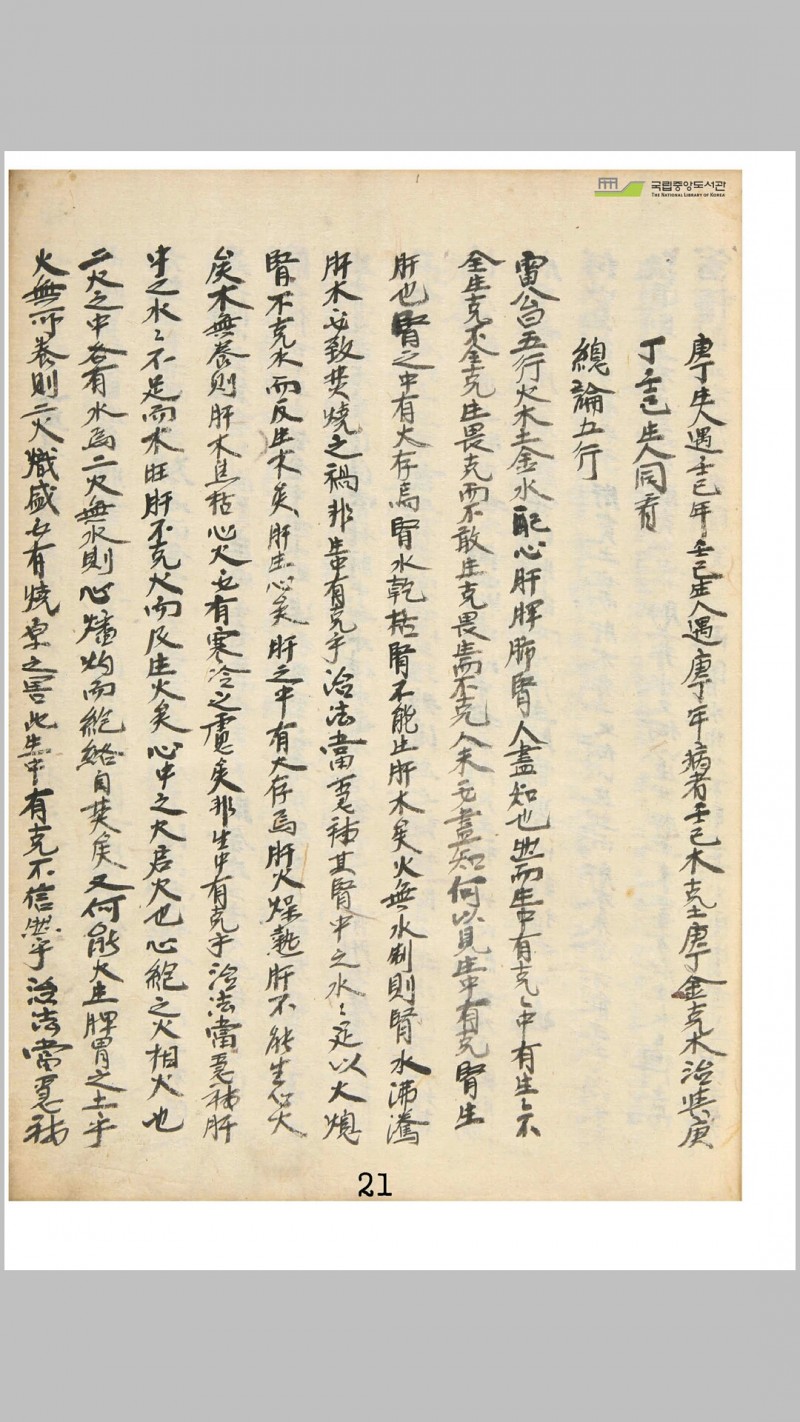 국립중앙도서관
THE NATIONAL LIBRARY OF KOREA
庚丁生人遇壬己年壬己生人遇庚丁年病者壬己木克土庚丁金克木治與庚
丁壬己生人同看
總論五行
雷公曰五行火木土金水配心肝脾肺腎人盡知也然而生中有克〻中有生〻不
全生克不全克生畏克而不敢生克畏生而不克人未必盡知何以見生中有克腎生
肝也腎之中有火存焉腎水乾枯腎不能生肝木矣火無水制則腎水沸騰
肝木必致焚燒之禍非生中有克乎治法當急補其腎中之水〻足以火熄
腎不克水而反生木矣肝生心矣肝之中有火存焉肝火燥熱肝不能生心火
矣木無養則肝木焦枯心火必有寒冷之慮矣非生中有克乎治法當急補肝
中之水〻不足而木旺肝不克火而反生火矣心中之火君火也心絶之火相火也
二火之中各有水焉二火無水則心燔灼而絶絡自焚矣又何能火生脾胃之土乎
火無所養則二火熾盛必有燒原之害此生中有克不信然乎治法當急補
21